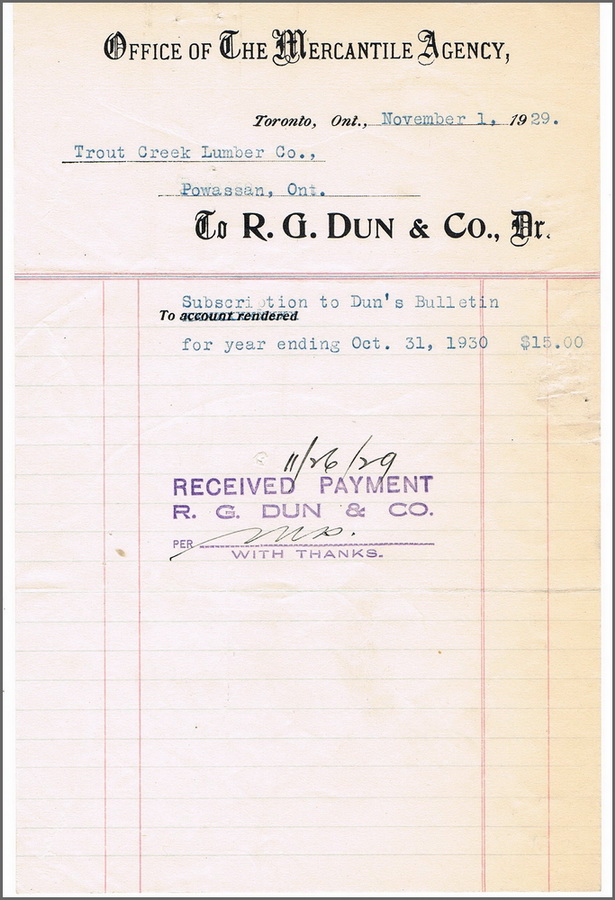 Office of The Mercantile Agency,
Toronto, Ont., November 1, 1929.
Trout Creek Lumber Co.,
Powassan, Ont.
To R. G. Dun & Co., Dr.
Subscription to Dun's Bulletin
To account rendered
for year ending Oct. 31, 1930 $15.00
11/26/29
RECEIVED PAYMENT
R. G. DUN & CO.
PER
WITH THANKS.